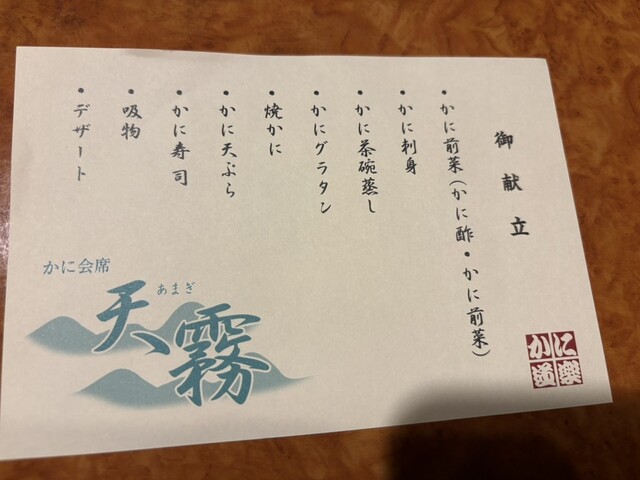 御献立
・かに前菜(かに酢・かに前菜)
・かに刺身
・かに茶碗蒸し
・かにグラタン
・焼かに
・かに天ぷら
・かに寿司
・吸物
・デザート
かに会席
あまぎ
天霧
かに
道楽